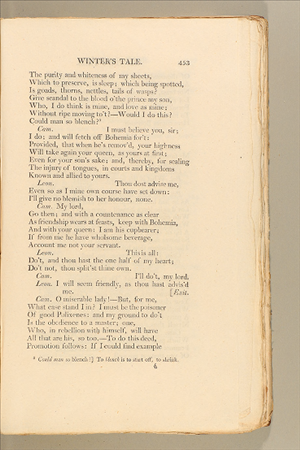 WINTER'S TALE. 453
The purity and whiteness of my sheets,
Which to preserve, is sleep; which being spotted,
Is goads, thorns, nettles, tails of wasps?
Give scandal to the blood o'the prince my son,
Who, I do think is mine, and love as mine;
Without ripe moving to't?—Would I do this?
Could man so blench?*
Cam. I must believe you, sir;
I do; and will fetch off Bohemia for't:
Provided, that when he's remov'd, your highness
Will take again your queen, as yours at first;
Even for your son's sake; and, thereby, for sealing
The injury of tongues, in courts and kingdoms
Known and allied to yours.
Leon. Thou dost advise me,
Even so as I mine own course have set down:
I'll give no blemish to her honour, none.
Cam. My lord,
Go then; and with a countenance as clear
As friendship wears at feasts, keep with Bohemia,
And with your queen: I am his cupbearer;
If from me he have wholsome beverage,
Account me not your servant.
Leon. This is all:
Do't, and thou hast the one half of my heart;
Do't not, thou split'st thine own.
Cam. I'll do't, my lord.
Leon. I will seem friendly, as thou hast advis'd
me. [Exit.
Cam. O miserable lady!—But, for me,
What case stand I in? I must be the poisoner
Of good Polixenes: and my ground to do't
Is the obedience to a master; one,
Who, in rebellion with himself, will have
All that are his, so too.—To do this deed,
Promotion follows: If I could find example
* Could man so blench?] To blench is to start off, to shrink.
6